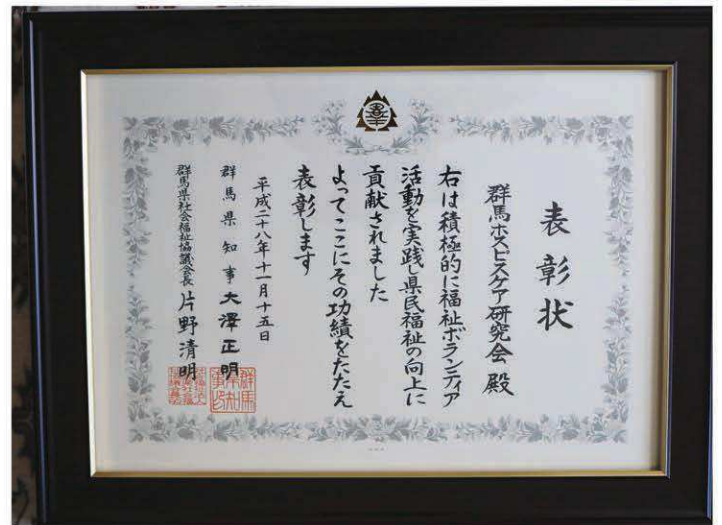 表彰状
群馬ホスピスケア研究会 殿
右は積極的に福祉ボランティア
活動を実践し県民福祉の向上に
貢献されました
よってここにその功績をたたえ
表彰します
平成二十八年十一月十五日
群馬県知事 大澤正明
群馬県社会福祉協議会長 片野清明